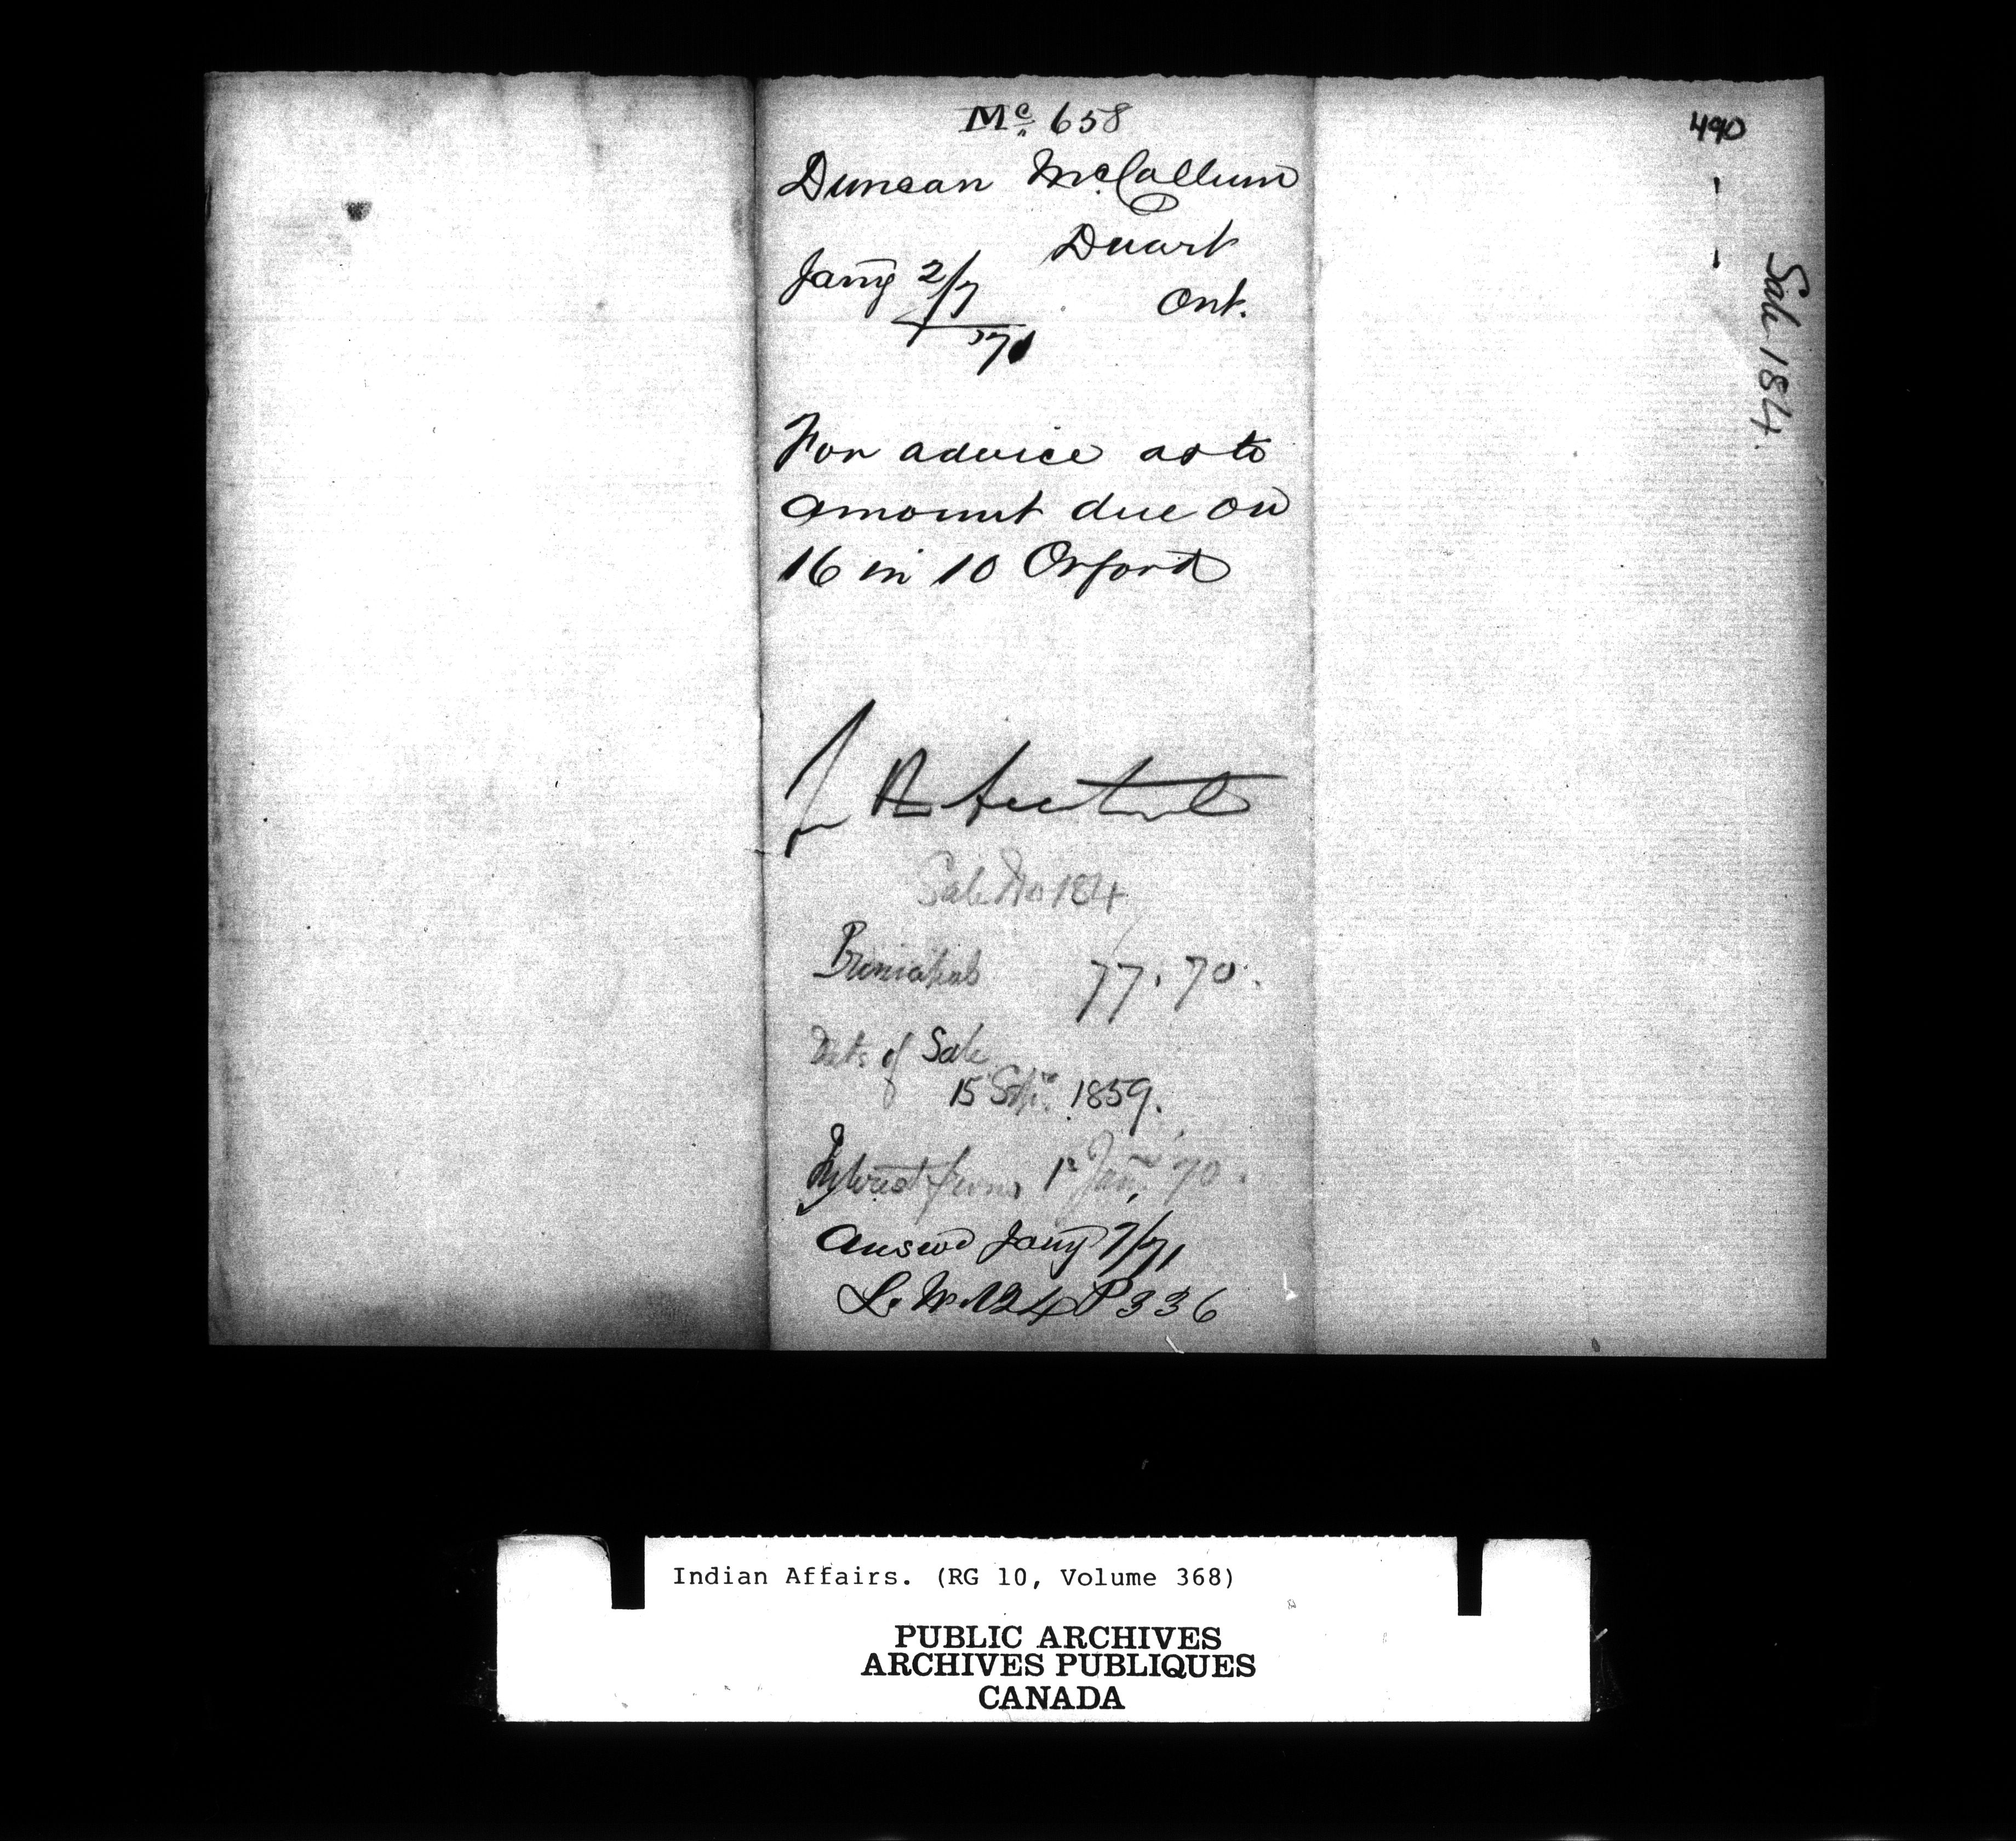 Mc. 658
Duncan McCallum
Duart
Ont.
Jany 2/7
'71
For advice as to
amount due on
16 in 10 Orford
Sale No 184
77.70.
Date of Sale
15 Sepr. 1859.
Interest from 1st Jany 70.
Answd Jany 7/71
L. Nr. 124 P 336
490
Sale 184.
Indian Affairs. (RG 10, Volume 368)
PUBLIC ARCHIVES
ARCHIVES PUBLIQUES
CANADA